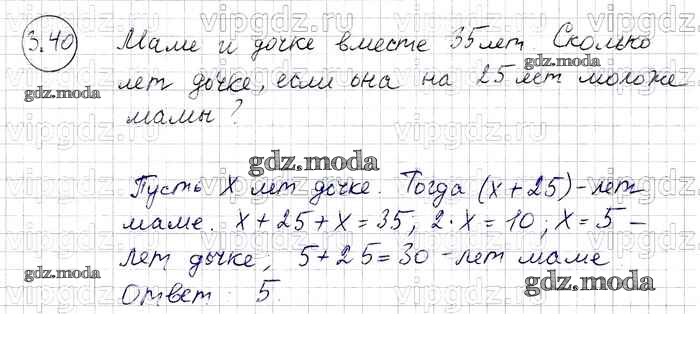 3.40 Маме и дочке вместе 35 лет Сколько
лет дочке, если она на 25 лет моложе
мамы?
Пусть x лет дочке. Тогда (x+25)-лет
маме. x+25+x=35; 2·x=10; x=5 –
лет дочке; 5+25=30 -лет маме
Ответ: 5.
gdz.moda
gdz.moda
gdz.moda
gdz.moda
gdz.moda
gdz.moda
vipgdz.ru